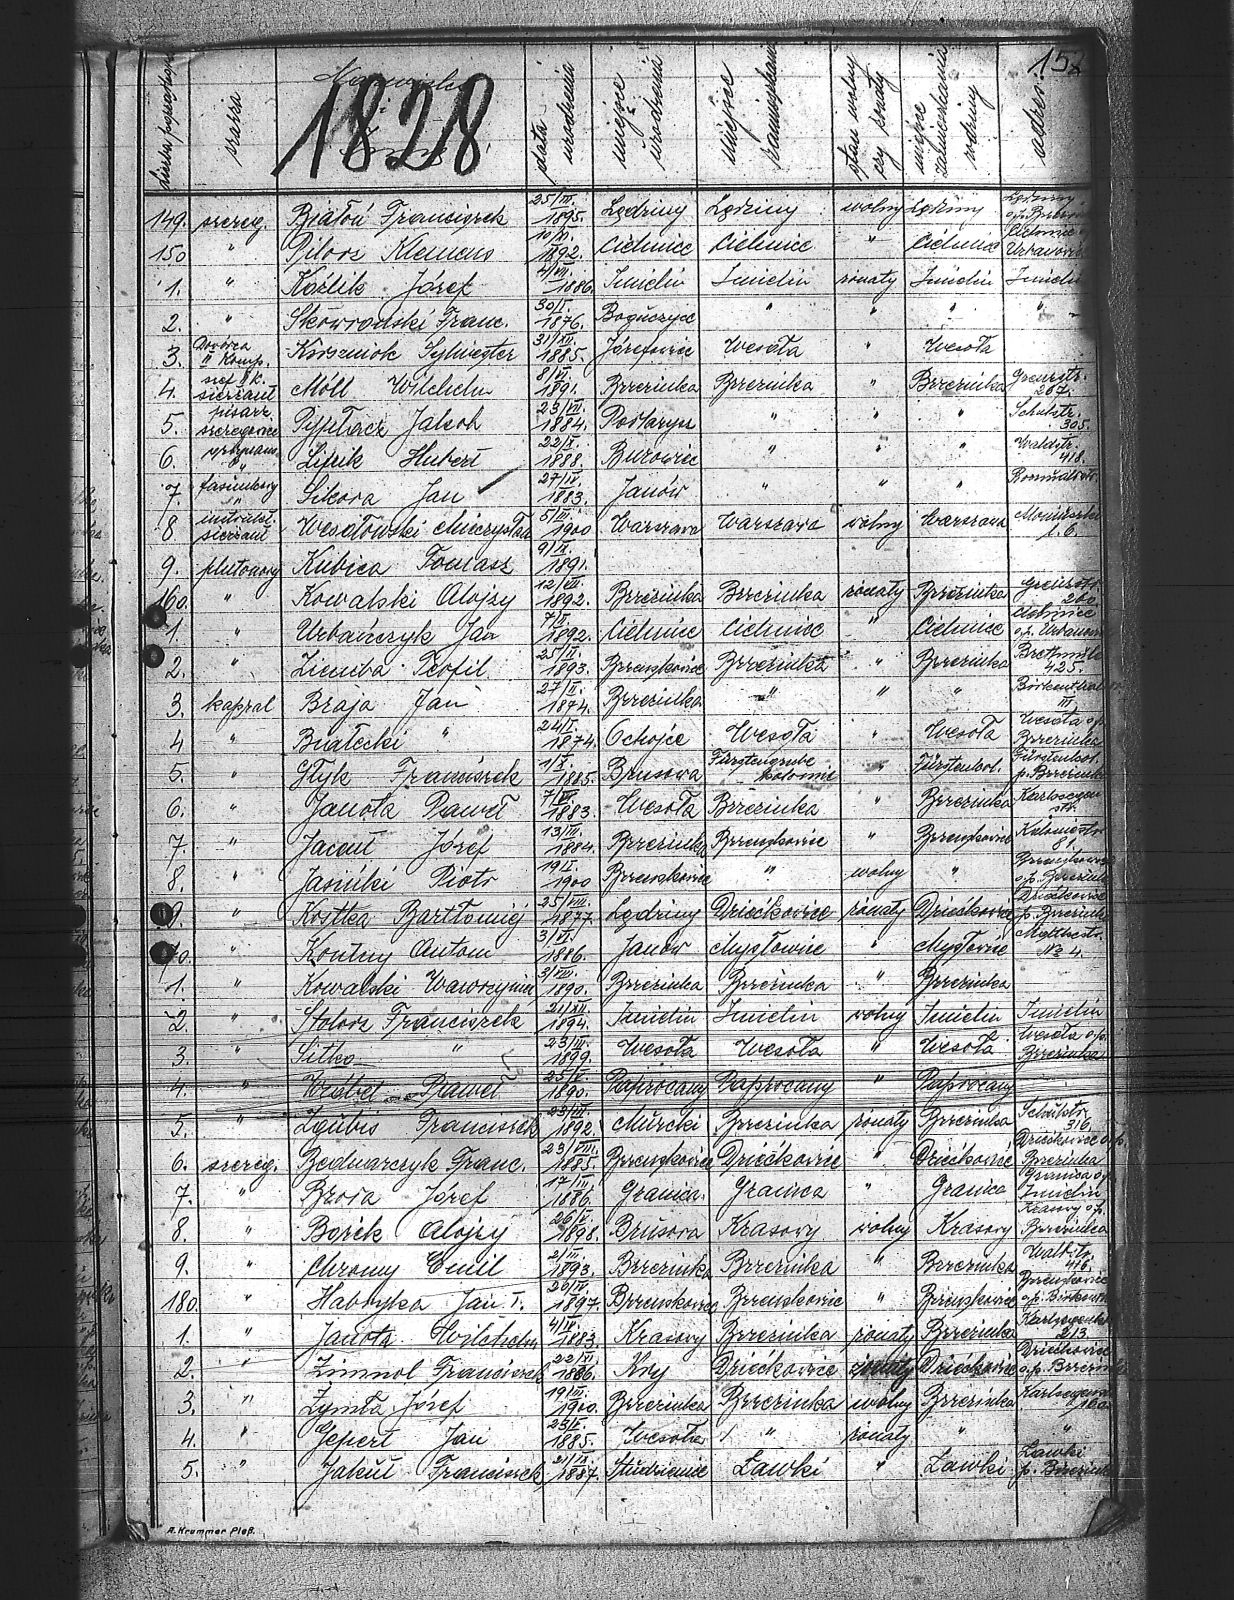 15
liczba porządkowa szarża Nazwisko i Imię data urodzenia miejsce urodzenia miejsce zamieszkania stan wolny czy żonaty miejsce zamieszkania rodziny adres
1828
149. szereg. Białoń Franciszek 25/III. 1895. Lędziny Lędziny wolny Lędziny Lędziny
150 " Pilorz Klemens 10/XI. 1892. Cielmice Cielmice " Cielmice Cielmice Urbanowice
1. " Kozlik Józef 4/VII. 1886. Imielin Imielin żonaty Imielin Imielin
2. " Skowroński Franc. 30/I. 1876. Boguczyce " " " "
3. Dowódca II Komp. Korzeniok Sylwester 31/XII. 1885. Józefowiec Wesoła " Wesoła
4. szef II k. sierżant Móll Wilchelm 8/VI. 1891. Brzezinka Brzezinka " Brzezinka Grenzstr. 267.
5. pisarz szeregowiec Jakob 23/VII. 1884. " " " Schulstr. 305.
6. " Lipik Hubert 22/X. 1888. Burowiec " " " Waldstr. 418.
7. fasunkowy Sikora Jan 27/IV. 1883. Janów " " "
8 instrukt. sierżant Wesołowski Mieczysław 5/III. 1900 Warszawa Warszawa wolny Warszawa Moniuszki 1. 6.
9. plutonowy Kubica Tomasz 9/XI. 1891.
160. " Kowalski Alojzy 12/VII. 1892. Brzezinka Brzezinka żonaty Brzezinka Grenzstr. 260
1. " Urbańczyk Jan 7/V. 1892. Cielmice Cielmice " Cielmice Cielmice o/p. Urbanow.
2. " Ziemba Teofil 25/XI. 1893. Brzenskowice Brzezinka " Brzezinka 425.
3. kapral Braja Jan 27/V. 1874. Brzezinka " " "
4 " Białecki " 24/I. 1874. Ochojec Wesoła " Wesoła Wesoła o/p. Brzezinka
5. " Głyk Franciszek 1/X. 1885. Brusowa Fürstengrube kolonie " Fürstenkol. Fürstenkol. p. Brzezinka
6. " Janota Paweł 1883. Wesoła Brzezinka " Brzezinka Karlssegen str.
7. " Jacent Józef 13/III. 1884. Brzezinka Brzenskowice " Brzenskowice 81.
8. " Jasiński Piotr 19/V. 1900 Brzenskowice " wolny " Brzenskowice o/p. Brzezinka
9. " Kostka Bartłomiej 25/VIII. 1877. Lędziny Dziećkowice żonaty Dziećkowice Dziećkowice p. Brzezinka
70. " Koutny Antoni 3/VI. 1886. Janów Mysłowice " Mysłowice № 4.
1. " Kowalski Wawrzyniec 3/VIII. 1890. Brzezinka Brzezinka " Brzezinka
2. " Stolorz Franciszek 21/XII. 1894. Imielin Imielin wolny Imielin Imielin
3. " Sitko " 23/III. 1899. Wesoła Wesoła " Wesoła Wesoła o/p. Brzezinka
4. " Paweł 25/V. 1890. Paprocany Paprocany " Paprocany
5. " Zgubis Franciszek 23/III. 1892. Murcki Brzezinka żonaty Brzezinka Schulstr. 316.
6. szereg. Bednarczyk Franc. 23/VIII. 1885. Brzenskowice Dziećkowice " Dziećkowice Dziećkowice o/p Brzezinka
7. " Broia Józef 17/III. 1886. Granica. Granica " Granica Granica o/p. Imielin
8. " Borek Alojzy 26/V. 1898. Brusowa Krasowy wolny Krasowy Krasowy o/p. Brzezinka
9. " Chromy Emil 2/III. 1893. Brzezinka Brzezinka " Brzezinka Waldstr. 416.
180. " Habryka Jan I. 26/IV. 1897. Brzenskowice Brzenskowice " Brzenskowice Brzenskowice
1. " Janota Wilchelm 4/IV. 1883. Krasowy Brzezinka żonaty Brzezinka 213
2. " Zimnol Franciszek 22/XI. 1886. Kry Dziećkowice żonaty Dziećkowice Dziećkowice o/p. Brzezinka
3. " Zymła Józef 19/III. 1900. Brzezinka Brzezinka wolny Brzezinka
4. " Gepert Jan 23/V. 1885. Wesoła " żonaty " "
5. " Jakutt Franciszek 21/IX. 1887. Studzienice Ławki " Ławki Ławki p. Brzezinka
A. Krummer Pleß.